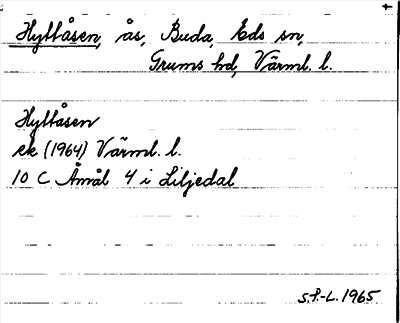 Hyltåsen, ås, Buda, Eds sn,
Grums hd, Värml. l.
Hyltåsen
ek (1964) Värml. l.
10 C Åmål 4 i Liljedal
S.P.-L. 1965